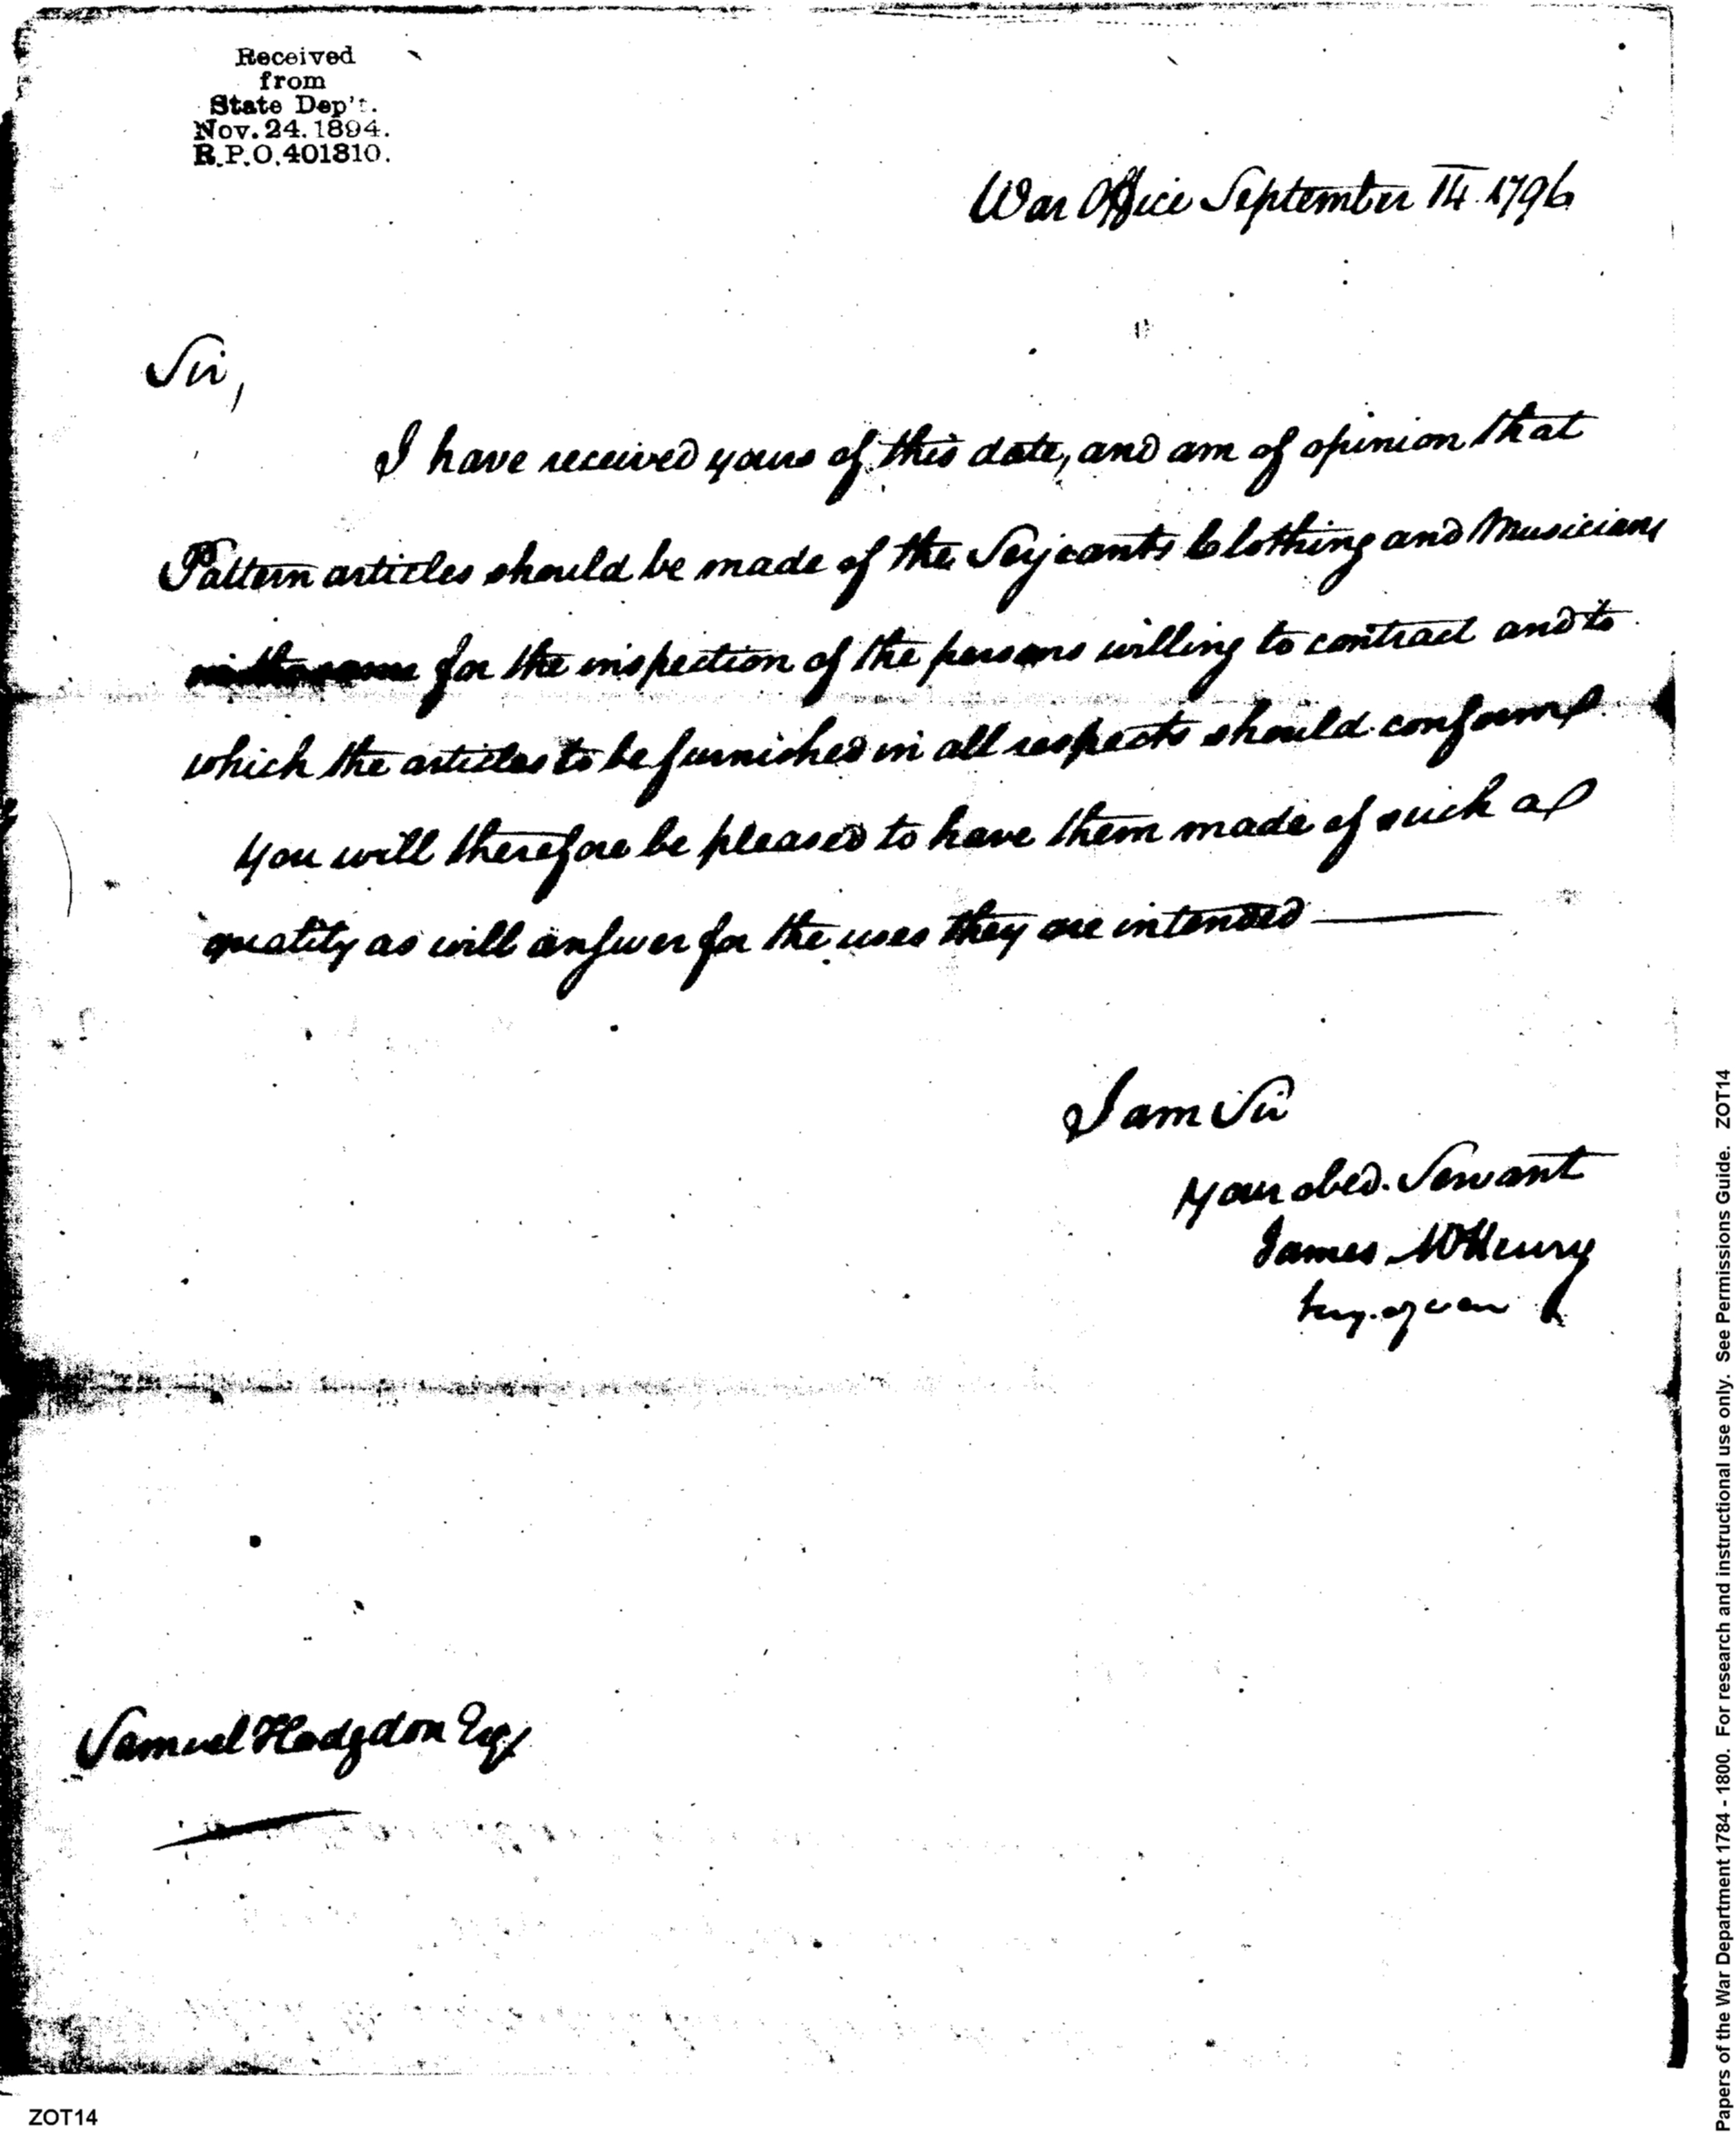 Received
from
State Dep't.
Nov. 24. 1894.
R.P.O. 401810.
War Office September 14. 1796
Sir,
I have received yours of this date, and am of opinion that
Pattern articles should be made of the Serjeants Clothing and Musicians
for the inspection of the persons willing to contract and to
which the articles to be furnished in all respects should conform
You will therefore be pleased to have them made of such a
quality as will answer for the uses they are intended
I am Sir
Your obed. Servant
James McHenry
Secy. of war
Samuel Hodgdon Esq
ZOT14
Papers of the War Department 1784 - 1800. For research and instructional use only. See Permissions Guide. ZOT14